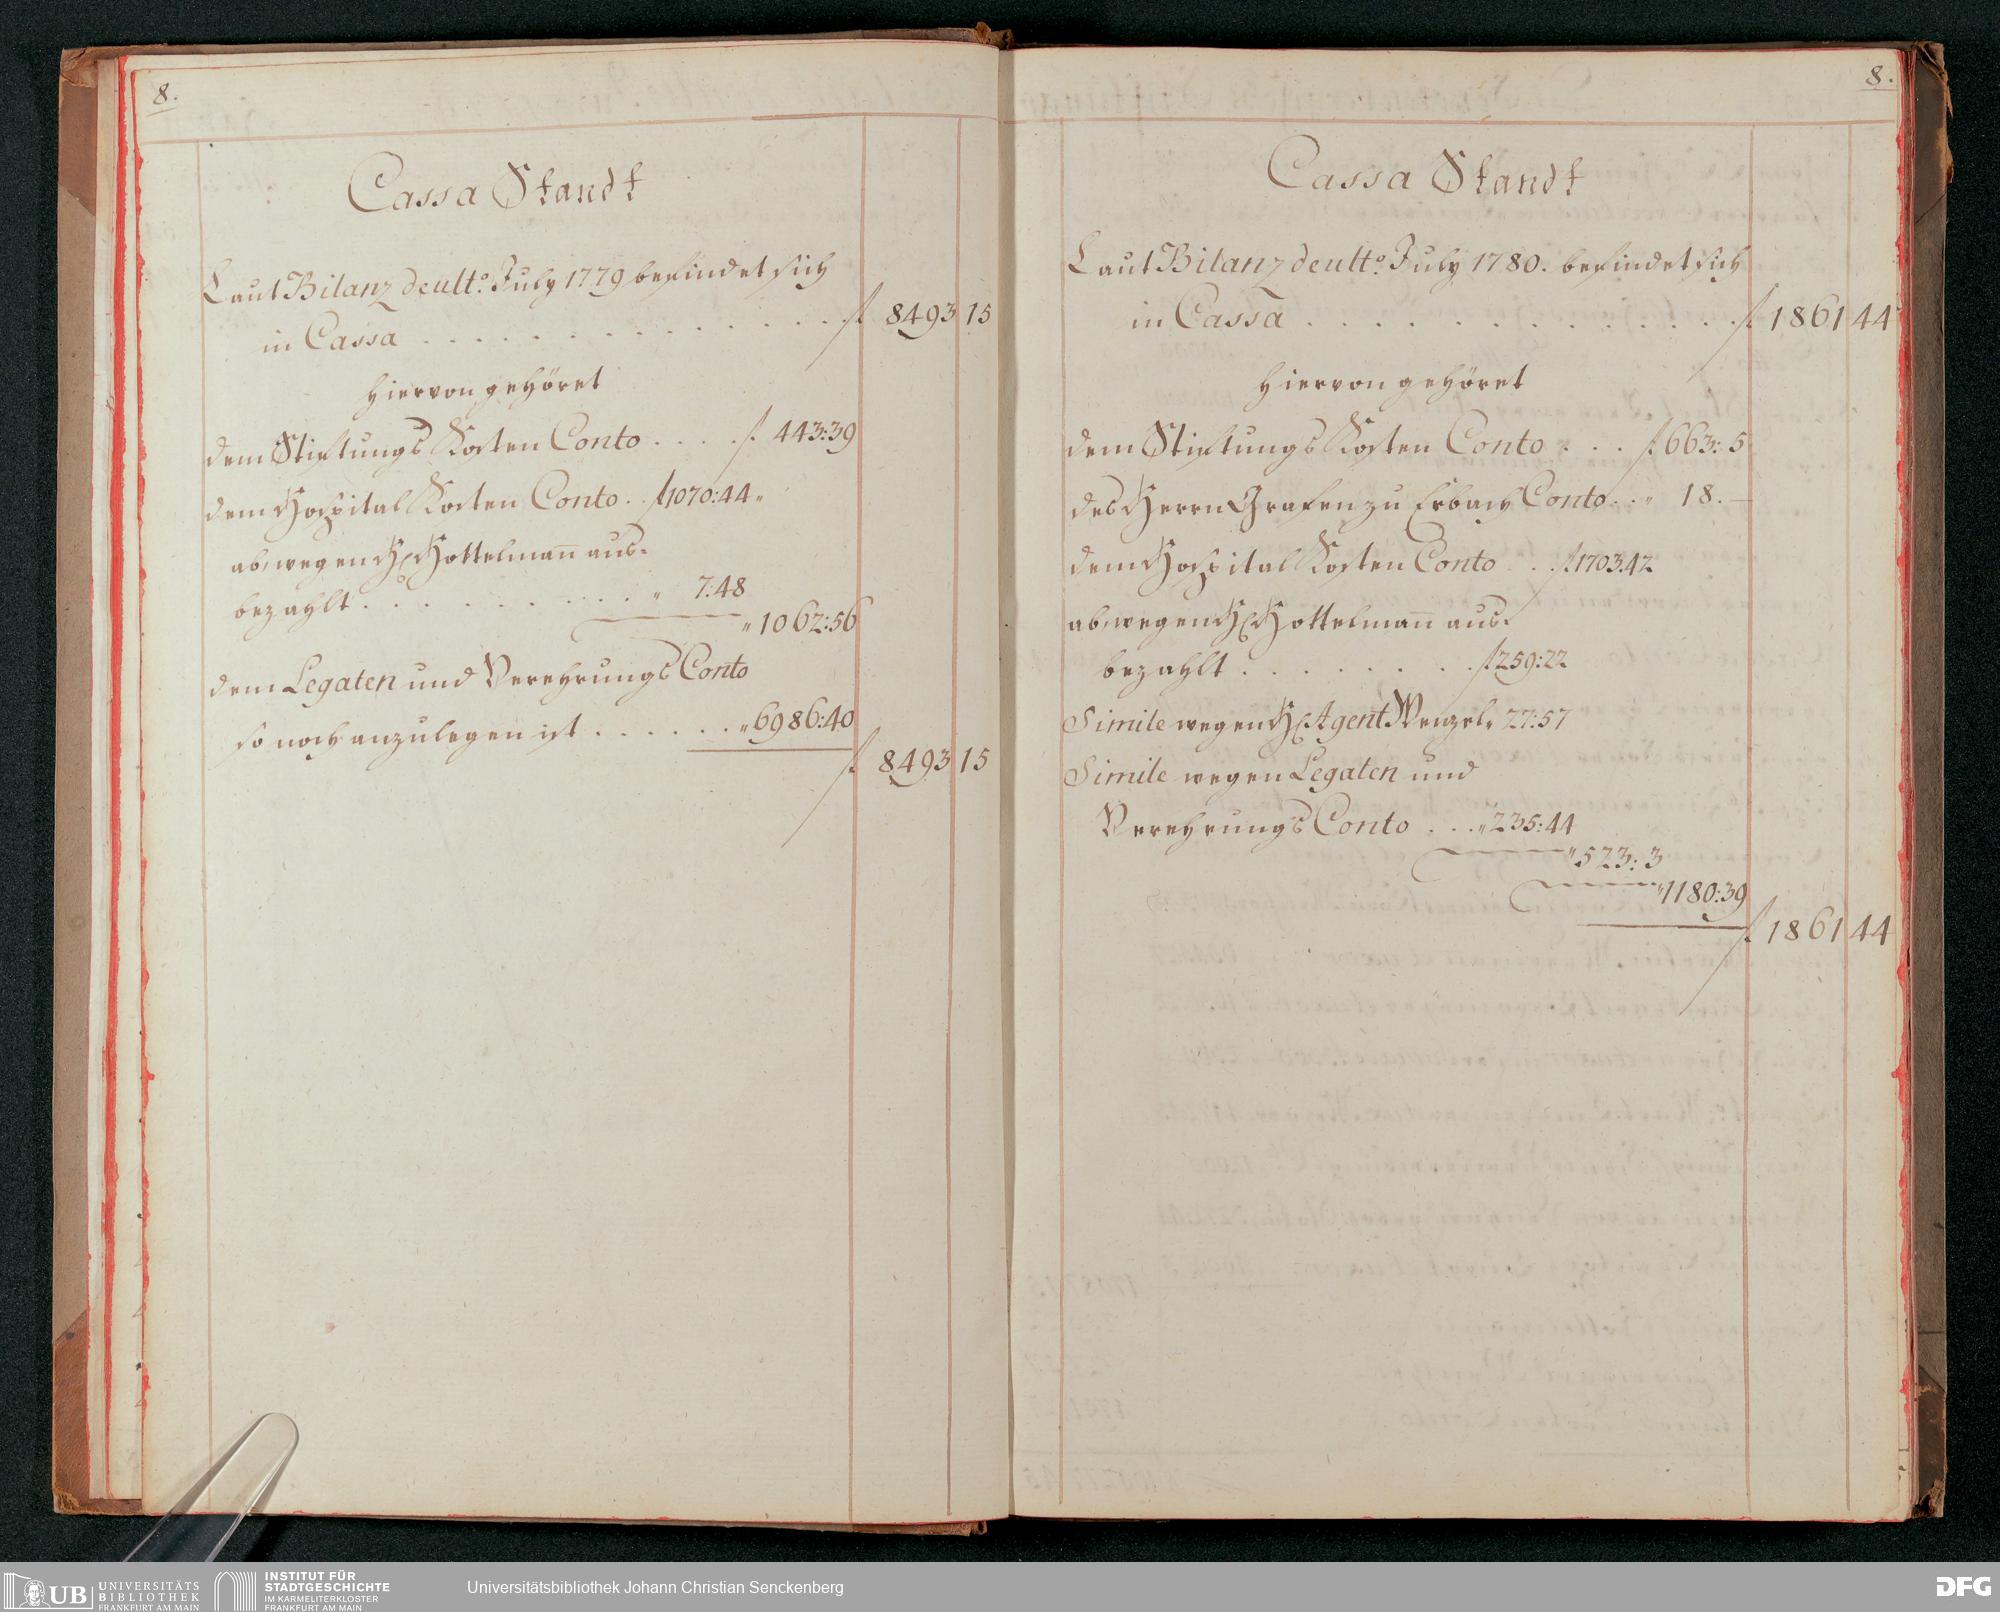 8.
Cassa Standt
Laut Bilanz de ulto. July 1779 befindet sich
in Cassa . . . . . . . . . . . . . . f. 8493 15
hiervon gehöret
dem Stiftungs Kosten Conto . . . . f. 443:39
dem Hospital Kosten Conto . . f 1070:44 "
ab, wegen H. Hottelman̄ aus-
bezahlt . . . . . . . . . . " 7:48
" 1062:56
dem Legaten und Verehrungs Conto
so noch anzulegen ist . . . . . . " 6986:40
f. 8493 15
8.
Cassa Standt
Laut Bilanz de ulto. July 1780. befindet sich
in Cassa . . . . . . . . . . . . . . f. 1861 44
hiervon gehöret
dem Stiftungs Kosten Conto . . . f. 663: 5
des Herrn Grafen zu Erbach Conto . . " 18. —
dem Hospital Kosten Conto . . f. 1703.42
ab, wegen H. Hottelman̄ aus-
bezahlt . . . . . . . . . f. 259:22
Simile wegen H. Agent Wenzel " 27:57
Simile wegen Legaten und
Verehrungs Conto . . . " 235:44
" 523: 3
" 1180:39
f. 1861 44
UB UNIVERSITÄTS
BIBLIOTHEK
FRANKFURT AM MAIN
INSTITUT FÜR
STADTGESCHICHTE
IM KARMELITERKLOSTER
FRANKFURT AM MAIN
Universitätsbibliothek Johann Christian Senckenberg
DFG